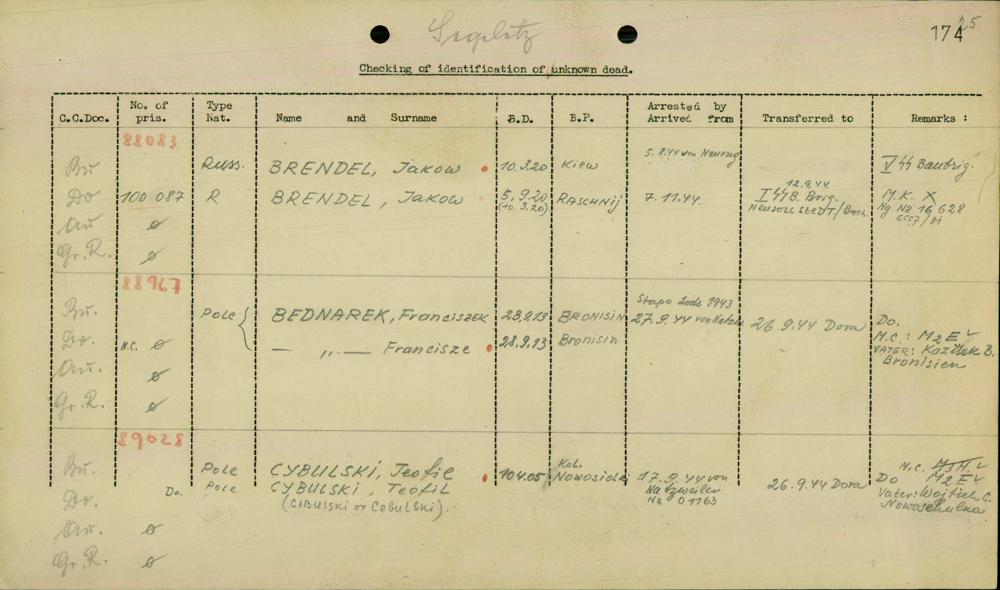 174 25
Checking of identification of unknown dead.
C.C.Doc. No. of pris. Type Nat. Name and Surname B.D. B.P. Arrested by Arrived from Transferred to Remarks :
88083
Bu Russ. BRENDEL, Jakow 10.3.20 Kiew 5. 8.44 von V SS Baubrig.
Do 100 087 R BRENDEL, Jakow 5.9.20 (10.3.20) RASCHNIJ 7.11.44. 12.9.44. I SS B. Brig. / Buch. M.K. X
Ng No 16 628
Au ø
Gr.R. ø
88967
Stapo Lods 1943
Bu. Pole BEDNAREK, Franciszek 28.9.13 BRONISIN 27.9.44 von 26.9.44 Dora Do.
Do. M.C. ø — „ — Francisze 28.9.13 Bronisin M.C: M2E
VATER: B.
Bronisien
Au. ø
Gr.R. ø
89028
Bu. Pole CYBULSKI, Teofil 10.4.05 Kol. 17.9.44 von M.C.
Do. Do. Pole CYBULSKI, Teofil Natzweiler 26.9.44 Dora Do M2E
(CIBULSKI or Cebulski). No 01163 Vater: Wojtieh C.
Nowoschulka
Au. ø
Gr.R. ø